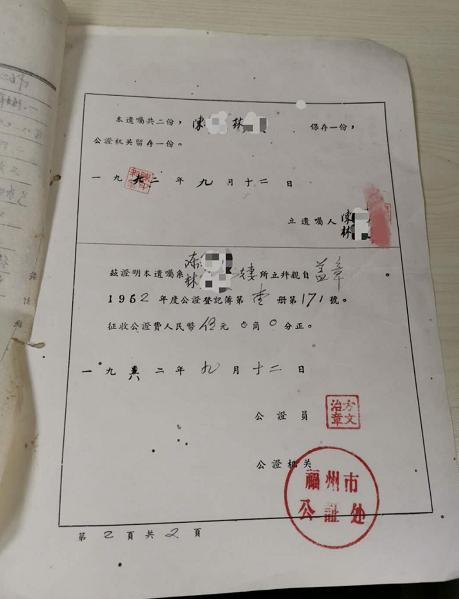 本遺囑共二份，陳 林 保存一份，
公證机关留存一份。
一九 六二 年 九 月 十二 日
立遺囑人 陳
林
茲證明本遺囑系 陈 林 所立幷親自 蓋章 。
1962 年度公證登記簿第 壹 册第171號。
征收公證費人民幣 伍元 0角 0 分正。
一九 二年 九 月 十二 日
公證員
方文治章
公證机关
福州市
公証处
第 2 頁共 2 頁